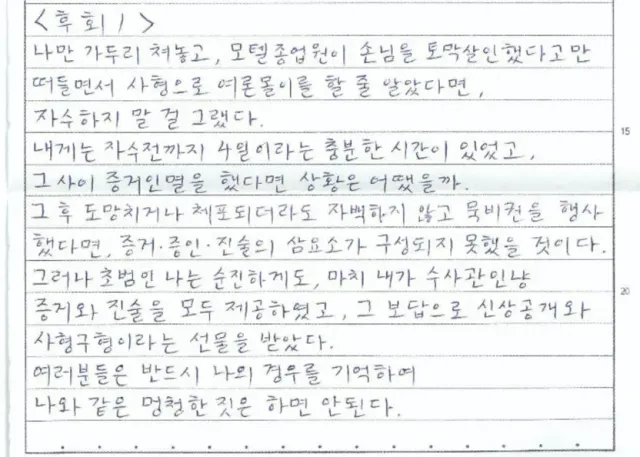 <후회 1>
나만 가두리 쳐놓고, 모텔종업원이 손님을 토막살인했다고만
떠들면서 사형으로 여론몰이를 할 줄 알았다면,
자수하지 말 걸 그랬다.
15
내게는 자수전까지 4일이라는 충분한 시간이 있었고,
그 사이 증거인멸을 했다면 상황은 어땠을까.
그 후 도망치거나 체포되더라도 자백하지 않고 묵비권을 행사
했다면, 증거·증인·진술의 삼요소가 구성되지 못했을 것이다.
그러나 초범인 나는 순진하게도, 마치 내가 수사관인냥
20
증거와 진술을 모두 제공하였고, 그 보답으로 신상공개와
사형구형이라는 선물을 받았다.
여러분들은 반드시 나의 경우를 기억하여
나와 같은 멍청한 짓은 하면 안된다.